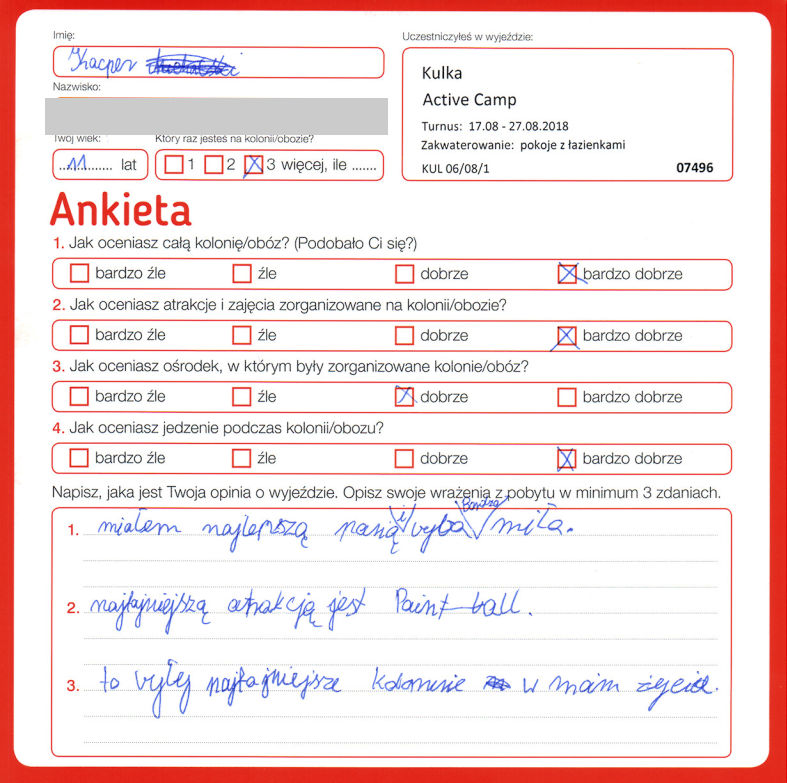 Imię:
Kacper
Nazwisko:
Twój wiek:
11 lat
Który raz jesteś na kolonii/obozie?
1 2 3 więcej, ile .......
Uczestniczyłeś w wyjeździe:
Kulka
Active Camp
Turnus: 17.08 - 27.08.2018
Zakwaterowanie: pokoje z łazienkami
KUL 06/08/1 07496
Ankieta
1. Jak oceniasz całą kolonię/obóz? (Podobało Ci się?)
bardzo źle źle dobrze bardzo dobrze
2. Jak oceniasz atrakcje i zajęcia zorganizowane na kolonii/obozie?
bardzo źle źle dobrze bardzo dobrze
3. Jak oceniasz ośrodek, w którym były zorganizowane kolonie/obóz?
bardzo źle źle dobrze bardzo dobrze
4. Jak oceniasz jedzenie podczas kolonii/obozu?
bardzo źle źle dobrze bardzo dobrze
Napisz, jaka jest Twoja opinia o wyjeździe. Opisz swoje wrażenia z pobytu w minimum 3 zdaniach.
1. miałem najlepszą panią i była bardzo miła.
2. najfajniejszą atrakcją jest Paint-ball.
3. to były najfajniejsze kolonie w moim życiu.